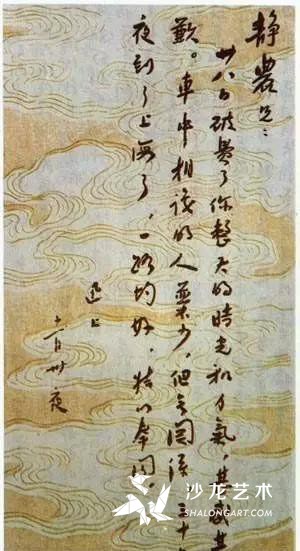 静農兄：
廿八日破費了你整天的時光和力氣，甚感甚
歉。車中相識的人少，但無關係，三十
夜到了上海了，一路均好，特以奉聞
迅上
十一月卅夜
沙龙艺术
SHALONGART.COM